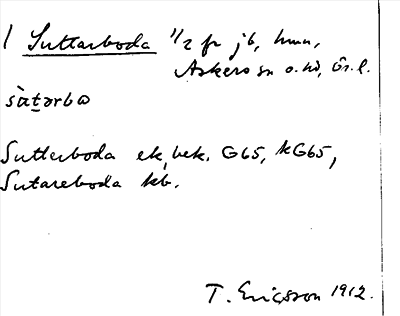 / Suttarboda 1/2 fr jb, hmn,
Askers sn o. hd, Ör. l.
sùtarbω
Sutterboda ek, bek. G65, kG65,
Sutareboda kb.
T. Ericsson 1912.